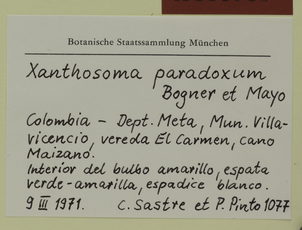 Botanische Staatssammlung München
Xanthosoma paradoxum
Bogner et Mayo
Colombia – Dept. Meta, Mun. Villa-
vicencio, vereda El Carmen, cano
Maizano.
Interior del bulbo amarillo, espata
verde-amarilla, espadice blanco.
9 III 1971. C. Sastre et P. Pinto 1077